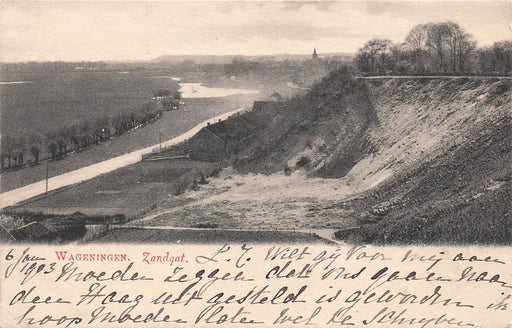 WAGENINGEN. Zandgat.
6 Jan 1903
L. J. Wilt gij voor mij aan
Moeder zeggen dat ons gaan naar
den Haag uit gesteld is geworden ik
hoop Moeder laten wel te schrijven